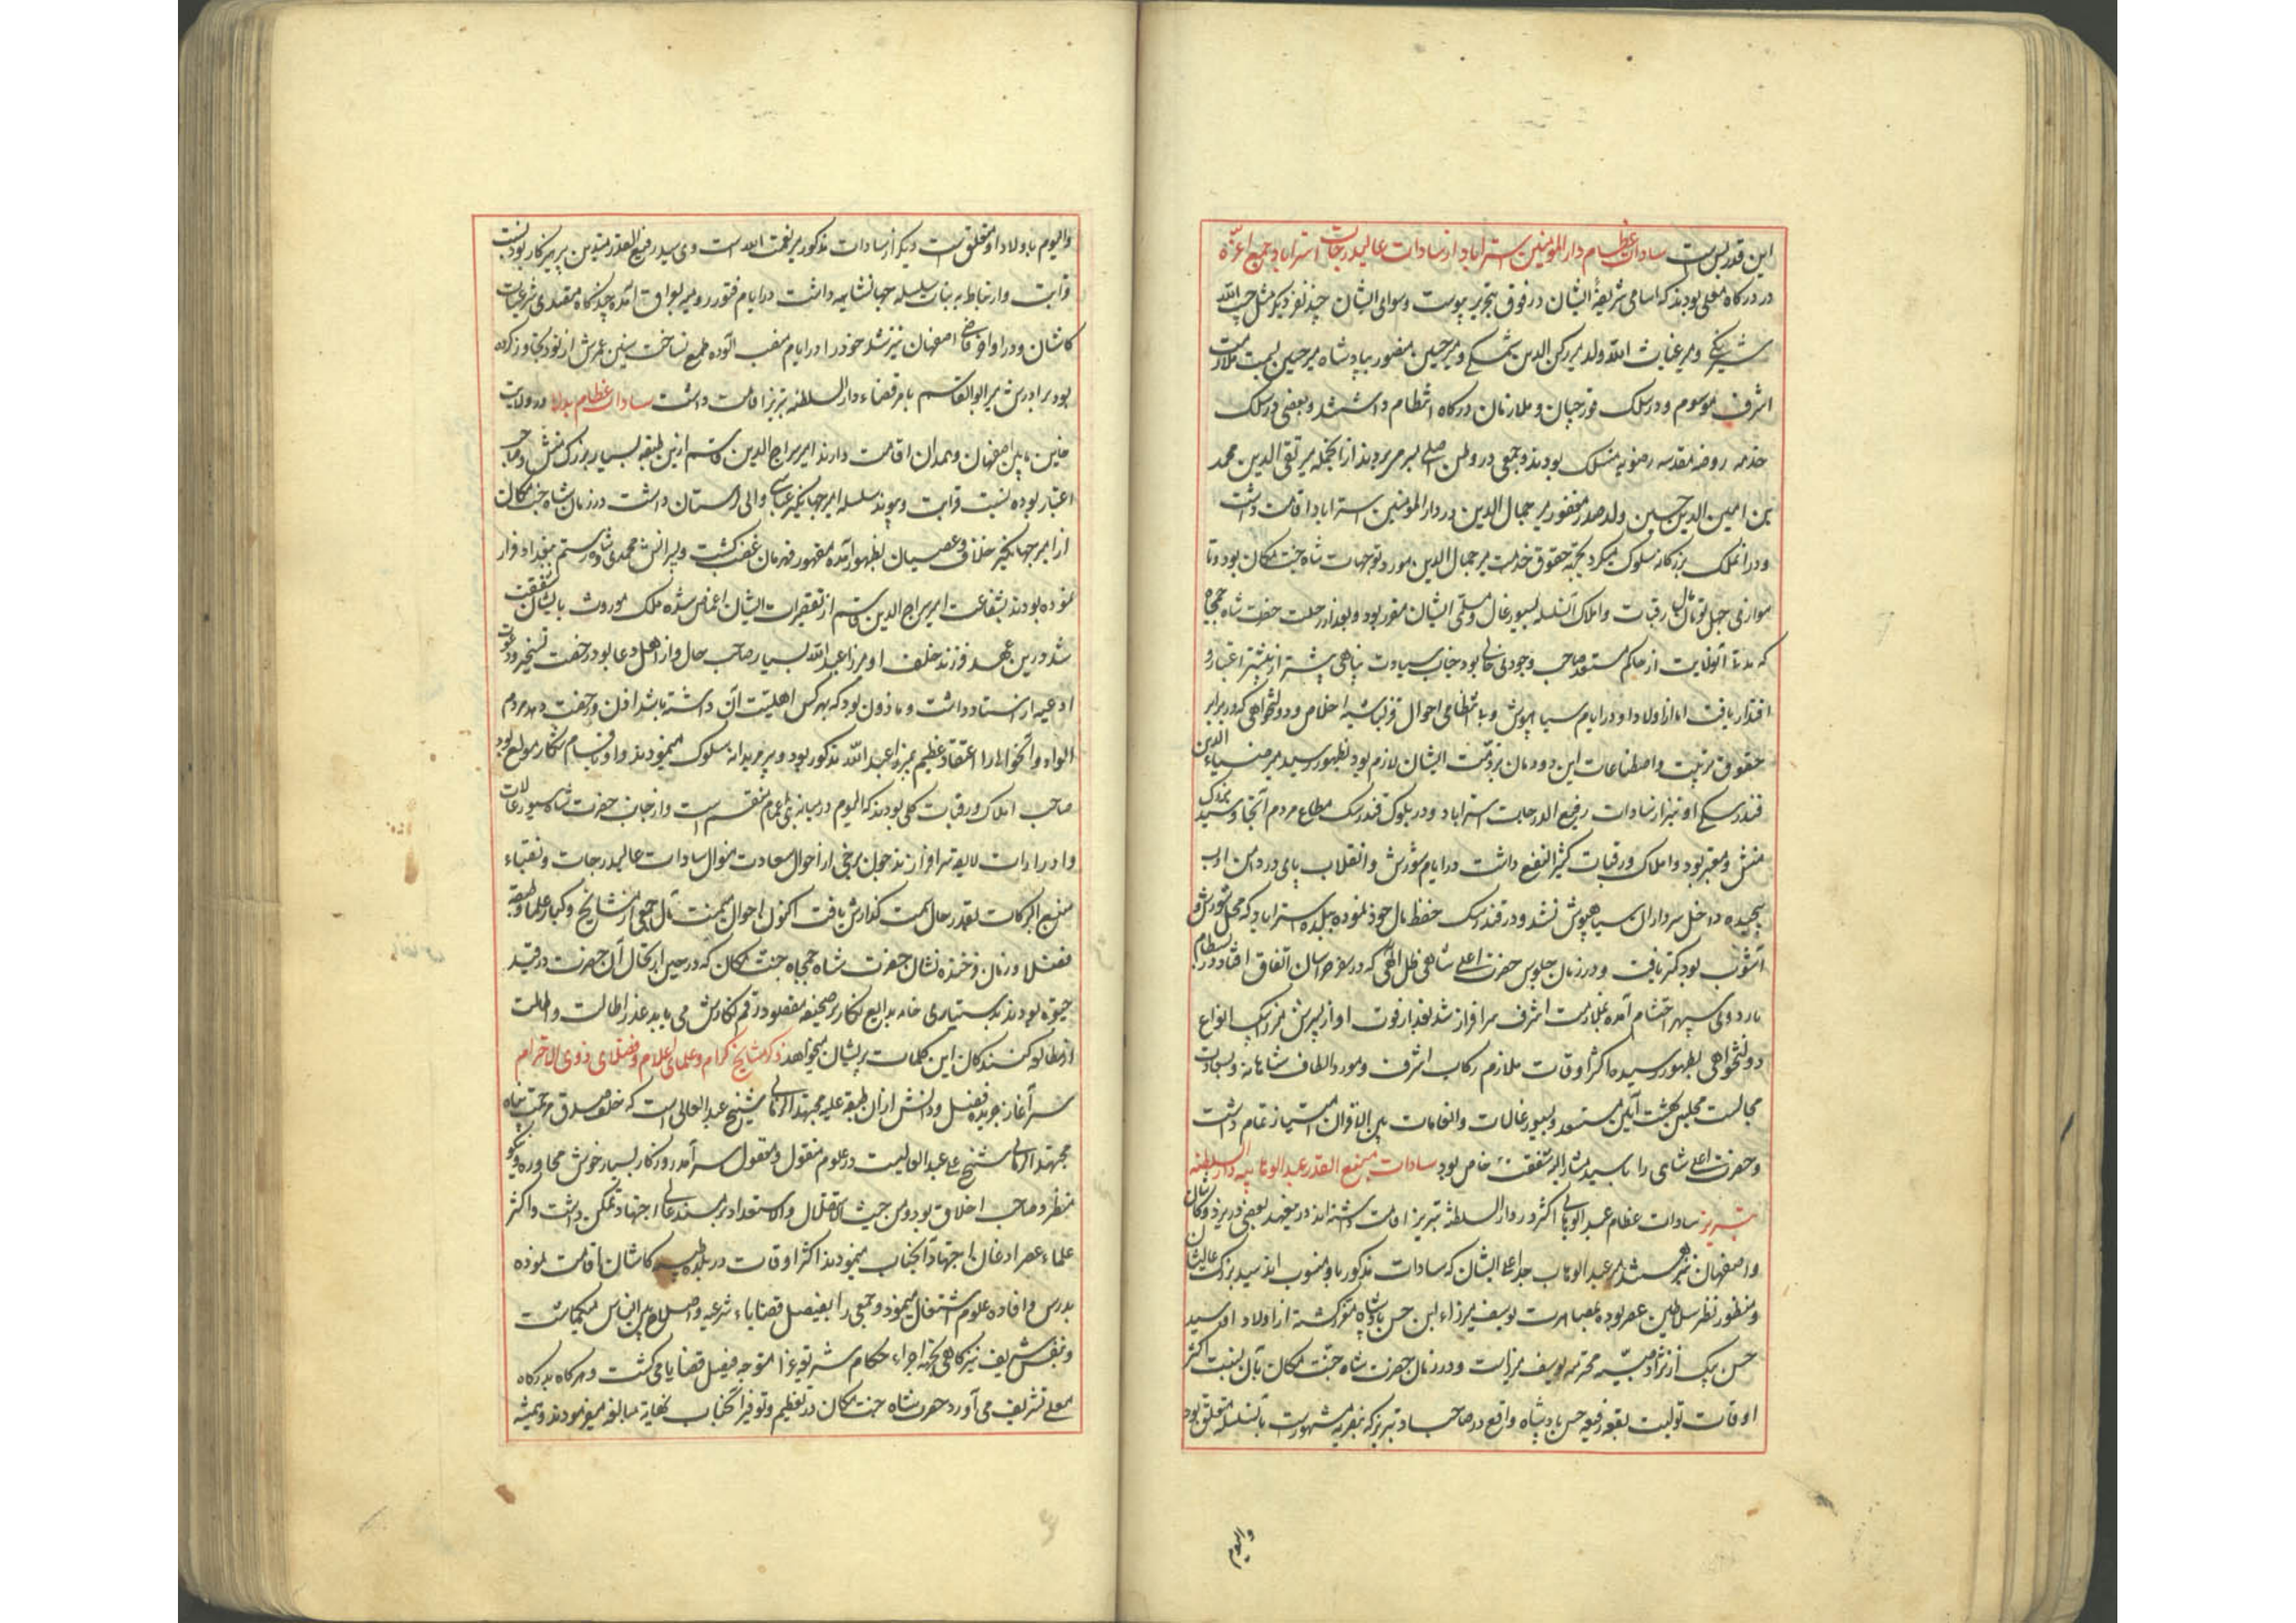 این قدر بس است سادات عظام دار المومنین استراباد از سادات عالیدرجات استراباد جمیع اعزه
در درگاه معلی بودند که اسامی شریفهٔ ایشان در فوق بتحریر پیوست و سوای ایشان چند نفر دیگر مثل حبیب الله
و میر غیاث الله ولد میر رکن الدین و میر حسین منصور بپادشاه میر حسین بسمت ملازمت
اشرف موسوم و در سلک قورچیان و ملازمان درگاه انتظام داشتند و بعضی در سلک
خدمه روضه مقدسه رضویه منسلک بودند و جمعی در وطن اصلی بسر میبردند از انجمله میر تقی الدین محمد
بن امین الدین حسین ولد صدر مغفور میر جمال الدین در دار المومنین استراباد اقامت داشت
و در انملک بزرگانه سلوک میکرد بجهة حقوق خدمت میر جمال الدین مورد توجهات شاه جنت مکان بود و تا
موازی چهل تومان مال رقبات و املاک آنسلسله بسیورغال و مسلمی ایشان مقرر بود و بعد از رحلت حضرت شاه جمجاه
که مدتها آنولایت از حاکم مستعد صاحب وجودی خالی بود جناب سیادت پناهی بیشتر از پیشتر اعتبار و
اقتدار یافت اما از اولاد او در ایام سیاه پوش و بی انتظامی احوال قزلباشیه اخلاص و دولتخواهی که در برابر
حقوق تربیت و اصطناعات این دودمان بر ذمت ایشان لازم بود بظهور نرسید میر ضیاء الدین
فندرسکی او نیز از سادات رفیع الدرجات استراباد و در بلوک فندرسک مطاع مردم آنجا و سید بزرگ
منش و معتبر بود و املاک و رقبات کثیر النفع داشت در ایام شورش و انقلاب پای در دامن ادب
پیچیده داخل سرداران سیاهپوش نشد و در فندرسک حفظ مال خود نموده ببلده استراباد که محل شورش و
آشوب بود کمتر یافت و در زمان جلوس حضرت اعلی شاهی ظل الهی که در سفر خراسان اتفاق افتاد در بسطام
باردوی سپهر احتشام آمده بملازمت اشرف سرافراز شد بعد از فوت او از پسرش میرزابیک انواع
دولتخواهی بظهور رسیده اکثر اوقات ملازم رکاب اشرف و مورد الطاف شاهانه و بسعادت
مجالست مجلس بهشت آیین مستسعد و بسیورغالات و انعامات بین الاقران امتیاز تمام داشت
و حضرت اعلی شاهی را با سید مشار الیه شفقت خاص بود سادات رفیع القدر عبدالوهابیه دار السلطنه
تبریز سادات عظام عبدالوهابی اکثر در دار السلطنه تبریز اقامت داشته اند درینعهد بعضی در یزد و کاشان
و اصفهان نیز هستند میر عبدالوهاب جد اعلی ایشان که سادات مذکور باو منسوب اند سید بزرگ عالیشان
و منظور نظر سلاطین عصر بوده بمصاهرت یوسف میرزاء ابن حسن پادشاه مقرر گشته از اولاد او سید
حسن بیک از نژاد صبیه محترمه یوسف میرزاست و در زمان حضرت شاه جنت مکان بآن نسبت اکثر
اوقات تولیت بقعه رفیعه حسن پادشاه واقع در صاحباد تبریز که بنصریه مشهورست بآنسلسله متعلق بود
والیوم
والیوم باولاد او متعلق است دیگر از سادات مذکور میر نعمت الله است وی سید رفیع القدر متدین پرهیزکار بود نسبت
قرابت و ارتباط به بنات سلسله جهانشاهیه داشت در ایام فتور رومیه بعراق آمده چند گاه متصدی شرعیات
کاشان و در اواخر قاضی اصفهان نیز شد خود را در ایام منصب آلوده طمع نساخت سنین عمرش از نود تجاوز کرده
بود برادرش میر ابوالقاسم بامر قضاء دار السلطنه تبریز اقامت داشت سادات عظام در ولایت
مابین اصفهان و همدان اقامت دارند امیر سراج الدین قاسم ازین طبقه بسیار بزرگ منش و صاحب
اعتبار بوده نسبت قرابت و پیوند سلسله امیر جهانگیر عباسی والی لرستان داشت در زمان شاه جنت مکان
از امیر جهانگیر خلاف و عصیان بظهور آمده مقهور قهرمان غضب گشت و پسرانش محمدی و شاه رستم ببغداد فرار
نموده بودند بشفاعت امیر سراج الدین قاسم از تقصیرات ایشان اغماض شده ملک موروث بایشان شفقت
شد درین عهد فرزند خلف او میرزا عبدالله بسیار صاحب حال و از اهل دعا بود رخصت تسخیر و دعوات
ادعیه از استاد داشت و ماذون بود که بهر کس اهلیت آن داشته باشد اذن و رخصت دهد مردم
الوار و آنحوالی را اعتقاد عظیم بمیرزا عبدالله مذکور بود و پیر مریدانه سلوک مینمودند و او باقسام شکار مولع بود
صاحب املاک و رقبات کلی بودند که الیوم در میانه بنی اعمام منقسم است و از جانب حضرت شاه سیورغالات
و ادرارات لایقه سرافرازند چون برخی از احوال سعادت منوال سادات عالیدرجات و نقباء
منیع البرکات بقدر حال سمت گذارش یافت اکنون احوال میمنت مآل جمعی از مشایخ و کبار علما و طبقه
فضلا و زمان فرخنده نشان حضرت شاه جمجاه جنت مکان که در حین ارتحال آن حضرت در قید
حیوة بودند بدستیاری خامه بدایع نگار بر صحیفه مقصود رقم نگارش می یابد عذر اطالت و املات
از مطالعه کنندگان این کلمات پریشان میخواهد ذکر مشایخ کرام و علمای اعلام و فضلای ذوی الاحترام
سر آغاز جریده فضل و دانش از آن طبقه علیه مجتهد الزمانی شیخ عبدالعالی است که خلف صدق مرحمت پناه
مجتهد الزمانی شیخ علی عبدالعالیست در علوم منقول و معقول سرآمد روزگار بسیار خوش محاوره و نیکو
منظر و صاحب اخلاق بود و من حیث الاستقلال والاستعداد بر مسند عالی اجتهاد تمکن داشت و اکثر
علماء عصر اذعان اجتهاد آنجناب مینمودند اکثر اوقات در بلده طیبه کاشان اقامت نموده
بدرس و افاده علوم اشتغال مینمود و جمعی را بفیصل قضایاء شرعیه و اصلاح بین الناس میگماشت
و بنفس شریف نیز گاهی بجهة اجراء احکام شریعت غرا متوجه فیصل قضایا می گشت و هر گاه بدرگاه
معلی تشریف می آورد حضرت شاه جنت مکان در تعظیم و توقیر آنجناب بغایة مبالغه میفرمودند و همیشه